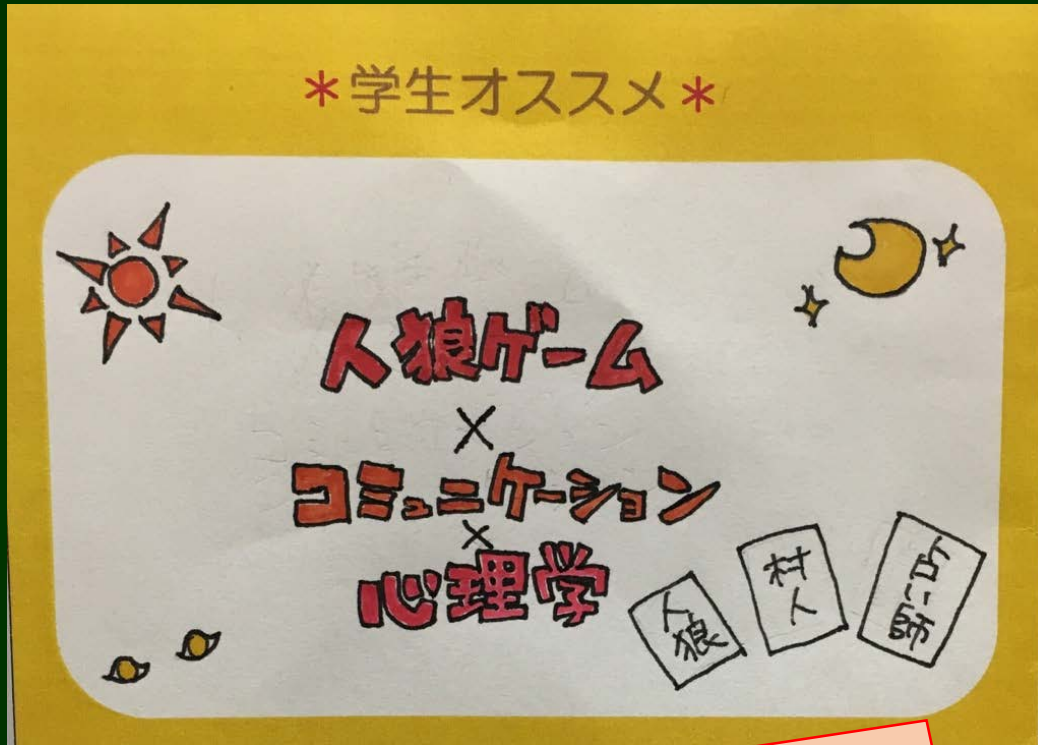 *学生オススメ*
人狼ゲーム
×
コミュニケーション
×
心理学
人狼
村人
占い師